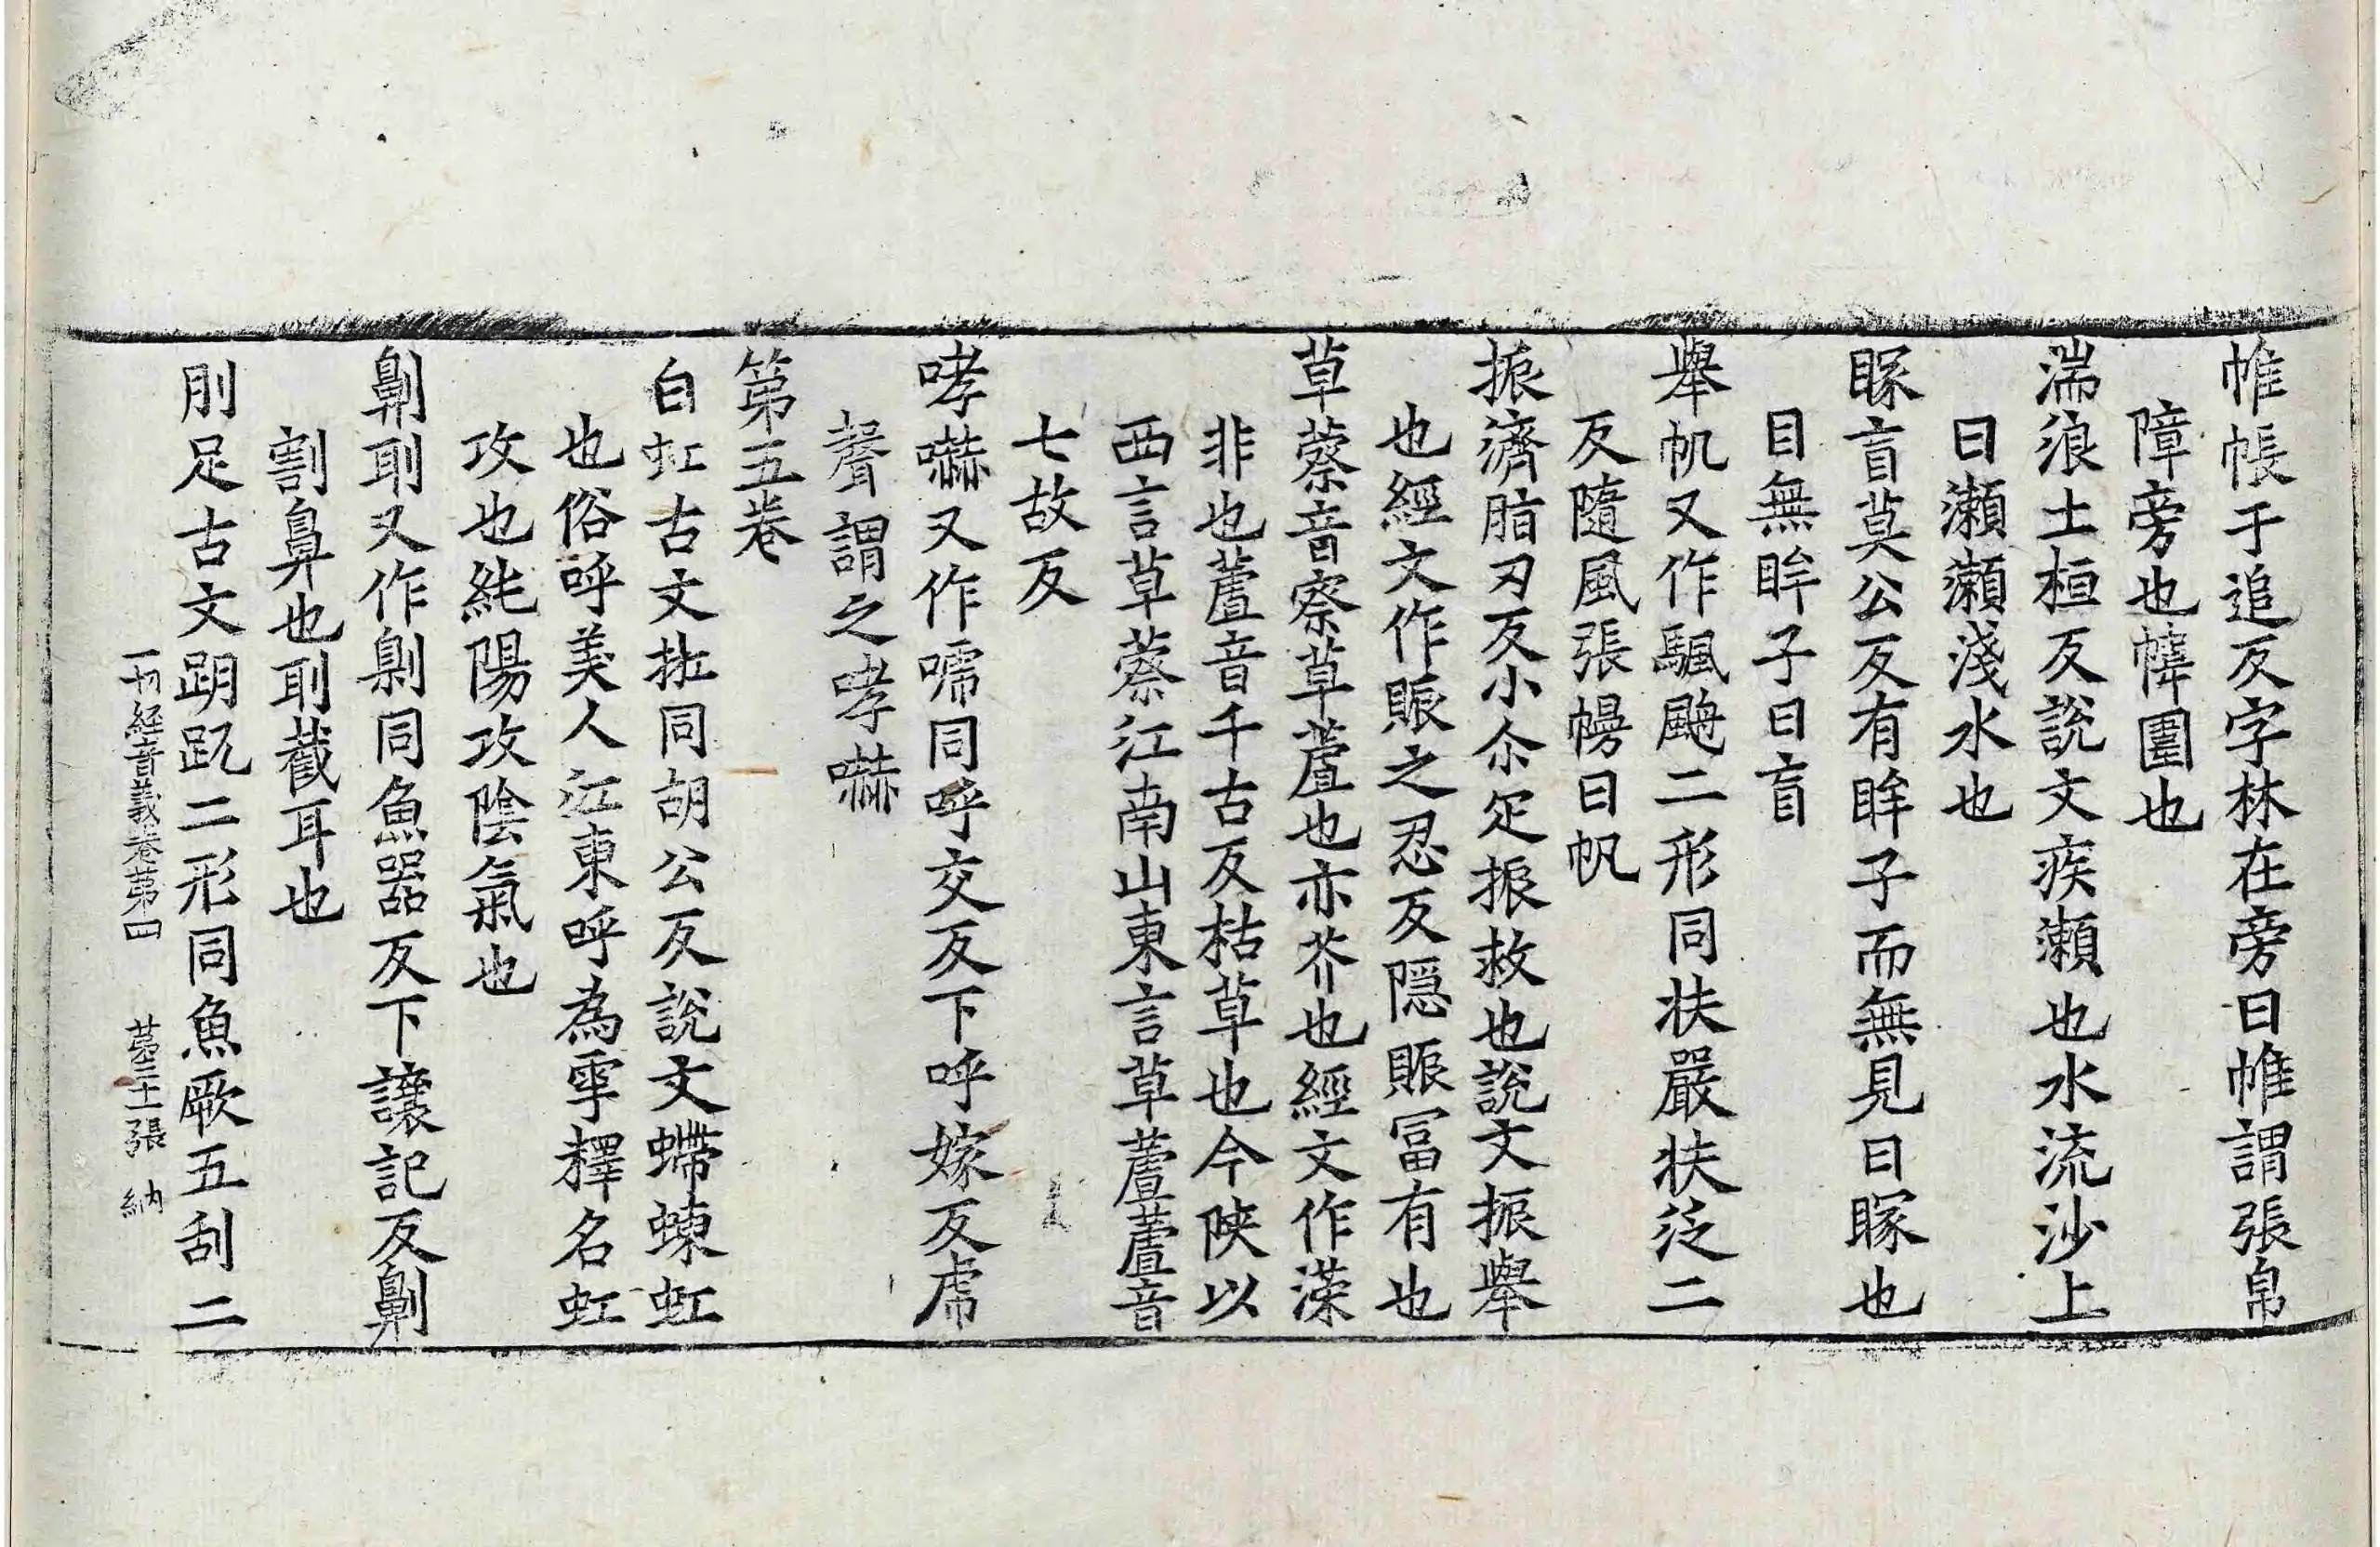 帷帳于追反字林在旁曰帷謂張帛
障旁也幃圍也
湍浪土桓反說文疾瀨也水流沙上
曰瀨瀨淺水也
矇盲莫公反有眸子而無見曰矇也
目無眸子曰盲
舉帆又作颿䫹二形同扶嚴扶泛二
反隨風張幔曰帆
振濟脂刃反小尒疋振救也說文振舉
也經文作賑之忍反隱賑冨有也
草蔡音察草蘆也亦芥也經文作
非也蘆音千古反枯草也今陜以
西言草蔡江南山東言草蘆蘆音
七故反
哮嚇又作唬同呼交反下呼嫁反虎
聲謂之哮嚇
第五卷
白虹古文同胡公反說文螮蝀虹
也俗呼美人江東呼為雩釋名虹
攻也純陽攻陰氣也
劓刵又作劓同魚器反下讓記反劓
割鼻也刵截耳也
刖足古文跀𧿁二形同魚厥五刮二
一切経音義卷第四 第三十二張 納